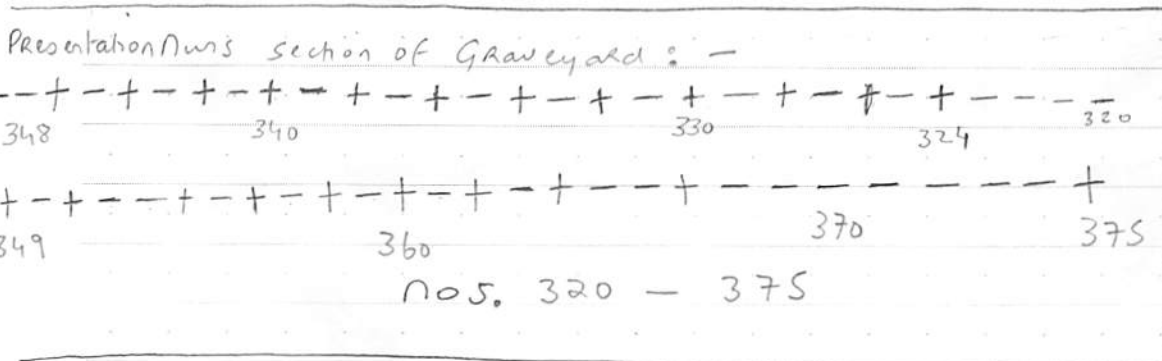 Presentation Nun's section of Graveyard : –
– – + – + – + – + – + – + – + – + – + – + – + – + – – – –
348 340 330 324 320
+ – + – – – + – + – + – + – + – + – – + – – – – – – – – +
349 360 370 375
nos. 320 – 375